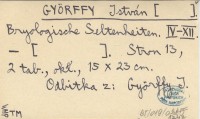 GYÖRFFY István [ ].
Bryologische Seltenheiten. IV-XII.
– [ ]. Stron 13,
2 tab., okl., 15 x 23 cm.
Odbitka z: Györffy I.
TM